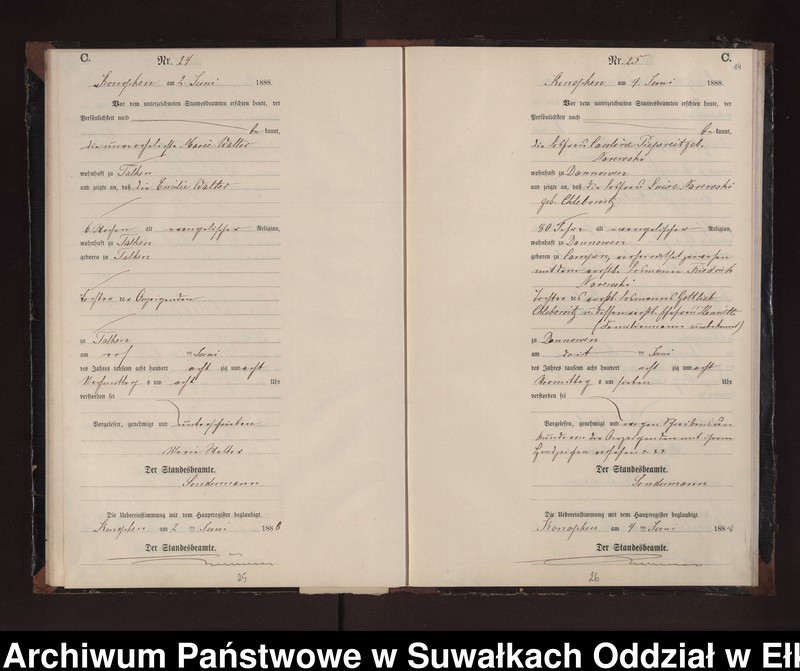 C.
Nr. 24
Konopken am 2. Juni 1888.
Vor dem unterzeichneten Standesbeamten erschien heute, der
Persönlichkeit nach
be kannt,
die unverehelichte Marie Walter
wohnhaft zu Talken
und zeigte an, daß die Emilie Walter
6 Wochen alt evangelischer Religion,
wohnhaft zu Talken
geboren zu Talken
Tochter der Anzeigenden
zu Talken
am ten Juni
des Jahres tausend acht hundert acht zig und acht
Nachmittag s um acht Uhr
verstorben sei
Vorgelesen, genehmigt und unterschrieben
Marie Walter
Der Standesbeamte.
Sondermann
Die Uebereinstimmung mit dem Hauptregister beglaubigt.
Konopken am 2 ten Juni 188 8
Der Standesbeamte.
25
Nr. 25
C.
14
Konopken am 4. Juni 1888.
Vor dem unterzeichneten Standesbeamten erschien heute, der
Persönlichkeit nach
be kannt,
die Losfrau Caroline geb.
Narewski
wohnhaft zu Dannowen
und zeigte an, daß die Losfrau Luise Narewski
geb. Chlebowitz
80 Jahre alt evangelischer Religion,
wohnhaft zu Dannowen
geboren zu verheirathet gewesen
mit dem verstb. Losmann Friedrich
Narewski
Tochter des verst. Losmanns Gottlieb
Chlebowitz u. dessen verst. Ehefrau Henriette
(Familienname unbekannt)
zu Dannowen
am ten Juni
des Jahres tausend acht hundert acht zig und acht
Vormittag s um sieben Uhr
verstorben sei
Vorgelesen, genehmigt und wegen Schreibensun
kunde von der Anzeigenden mit ihrem
Handzeichen versehen + + +
Der Standesbeamte.
Sondermann
Die Uebereinstimmung mit dem Hauptregister beglaubigt.
Konopken am 4 ten Juni 188 8
Der Standesbeamte.
26
Archiwum Państwowe w Suwałkach Oddział w Eł